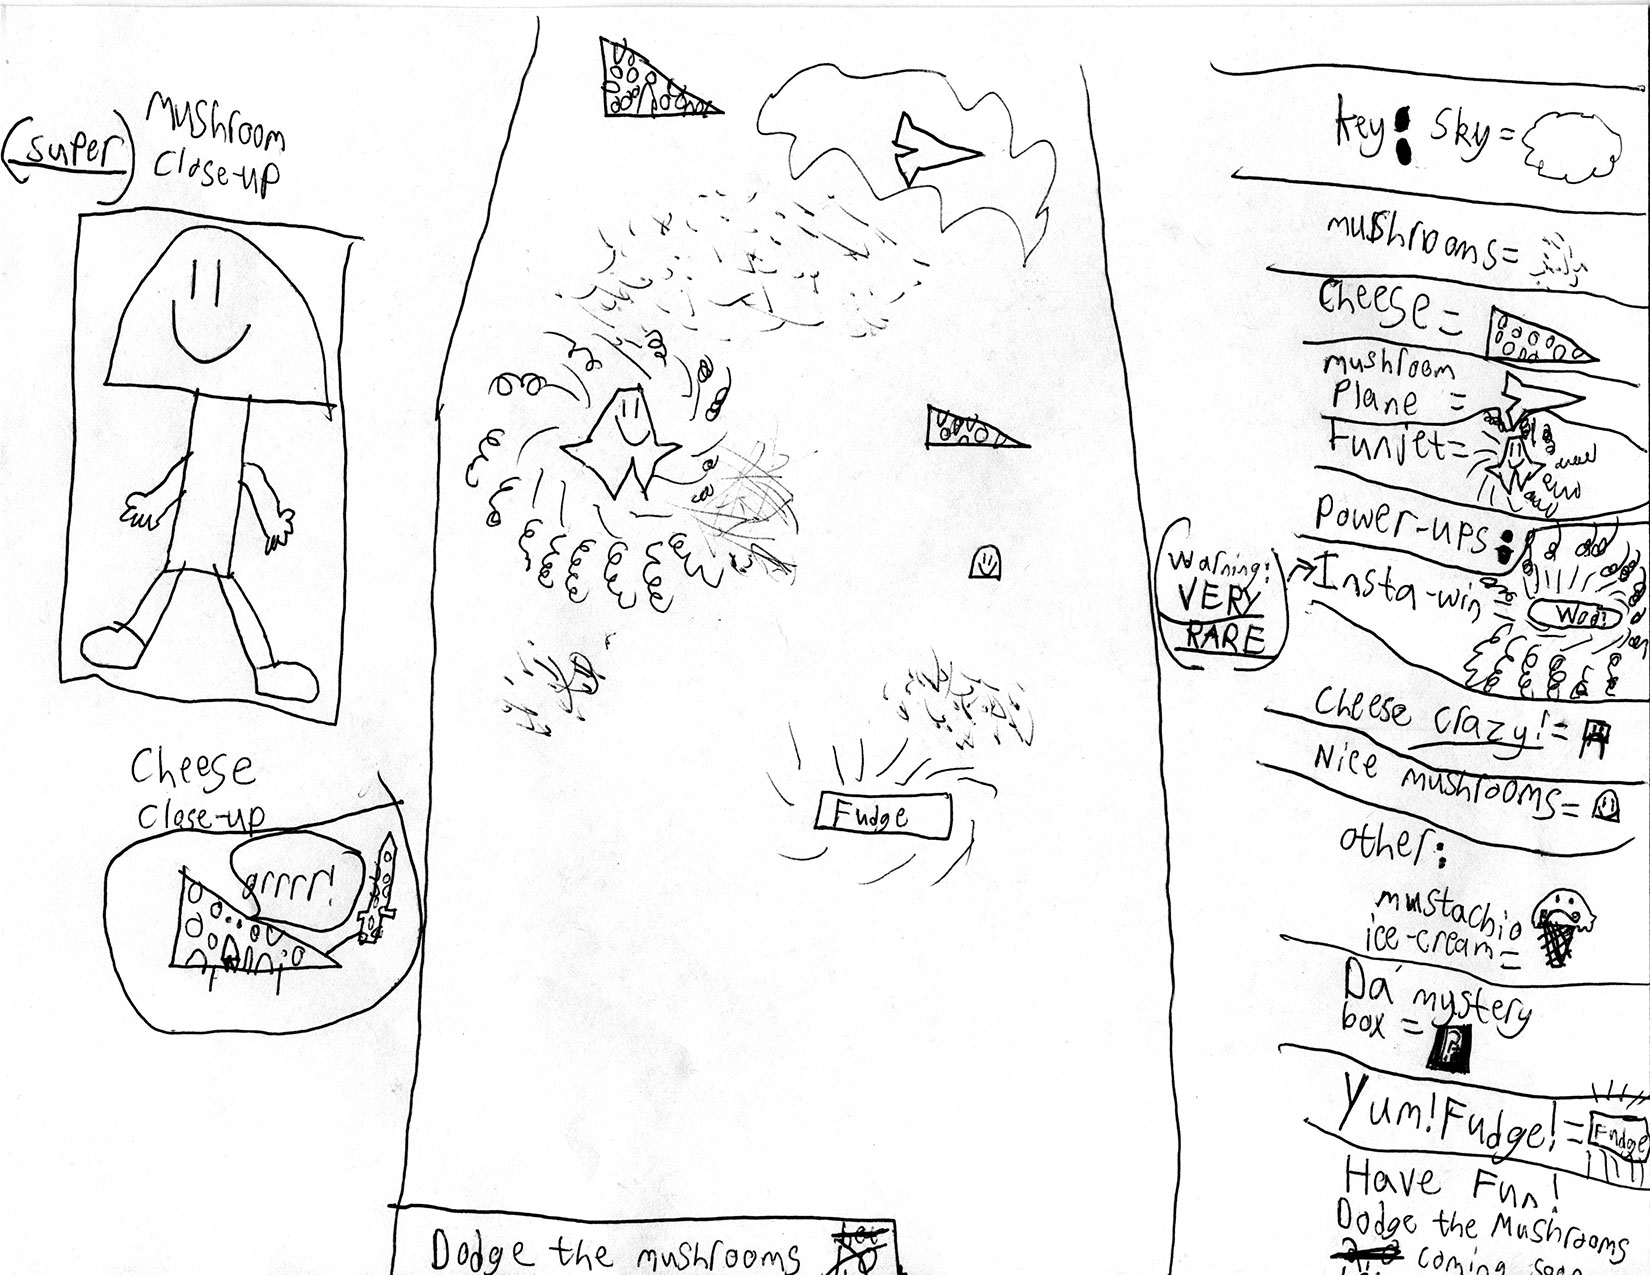 (super)
Mushroom
Close-up
Cheese
Close-up
grrrr!
Fudge
Dodge the mushrooms
key: Sky =
mushrooms =
Cheese =
mushroom
Plane =
Funjet =
Power-ups:
Warning:
VERY
RARE
Insta-win =
Woo!
Cheese crazy! =
Nice mushrooms =
other:
mustachio
ice-cream =
Da mystery
box =
Yum! Fudge! =
Fudge
Have Fun!
Dodge the Mushrooms
coming soon